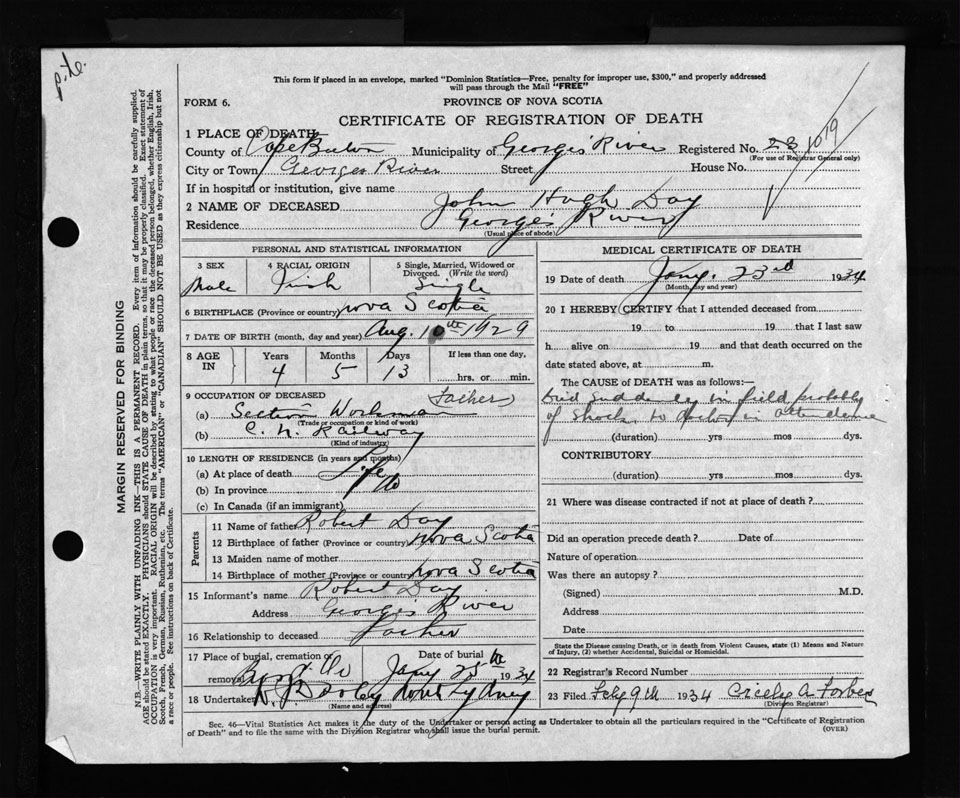 p.te.
This form if placed in an envelope, marked "Dominion Statistics—Free, penalty for improper use, $300," and properly addressed
will pass through the Mail "FREE"
FORM 6.
PROVINCE OF NOVA SCOTIA
CERTIFICATE OF REGISTRATION OF DEATH
1 PLACE OF DEATH
County of Cape Breton Municipality of Georges River Registered No. 28 1019
(For use of Registrar General only)
City or Town Georges River Street House No.
If in hospital or institution, give name
2 NAME OF DECEASED John Hugh Day
Residence Georges River
(Usual place of abode)
PERSONAL AND STATISTICAL INFORMATION
3 SEX 4 RACIAL ORIGIN 5 Single, Married, Widowed or
Divorced. (Write the word)
Male Irish Single
6 BIRTHPLACE (Province or country) Nova Scotia
7 DATE OF BIRTH (month, day and year) Aug. 10th 1929
8 AGE IN Years Months Days If less than one day,
4 5 13 hrs. or min.
9 OCCUPATION OF DECEASED Father
(a) Section Workman
(Trade or occupation or kind of work)
(b) C. N. Railway
(Kind of industry)
10 LENGTH OF RESIDENCE (in years and months)
(a) At place of death Life
(b) In province do
(c) In Canada (if an immigrant)
Parents
11 Name of father Robert Day
12 Birthplace of father (Province or country) Nova Scotia
13 Maiden name of mother
14 Birthplace of mother (Province or country) Nova Scotia
15 Informant's name Robert Day
Address Georges River
16 Relationship to deceased Father
17 Place of burial, cremation or Date of burial
removal Jany 25th 1934
18 Undertaker North Sydney
(Name and address)
MEDICAL CERTIFICATE OF DEATH
19 Date of death Jany. 23rd 1934
(Month, day and year)
20 I HEREBY CERTIFY that I attended deceased from
19 to 19 that I last saw
h alive on 19 and that death occurred on the
date stated above, at m.
The CAUSE OF DEATH was as follows:—
Died suddenly in field probably
of shock no doctor in attendence
(duration) yrs mos dys.
CONTRIBUTORY
(duration) yrs. mos. dys.
21 Where was disease contracted if not at place of death?
Did an operation precede death? Date of
Nature of operation
Was there an autopsy?
(Signed) M.D.
Address
Date
State the Disease causing Death, or in death from Violent Causes, state (1) Means and Nature
of Injury, (2) whether Accidental, Suicidal or Homicidal.
22 Registrar's Record Number
23 Filed Feby 9th 1934 Cicely A Forbes
(Division Registrar)
Sec. 46—Vital Statistics Act makes it the duty of the Undertaker or person acting as Undertaker to obtain all the particulars required in the "Certificate of Registration
of Death" and to file the same with the Division Registrar who shall issue the burial permit.
(OVER)
MARGIN RESERVED FOR BINDING
N.B.—WRITE PLAINLY WITH UNFADING INK—THIS IS A PERMANENT RECORD. Every item of information should be carefully supplied.
AGE should be stated EXACTLY. PHYSICIANS should STATE CAUSE OF DEATH in plain terms, so that it may be properly classified. Exact statement of
OCCUPATION is very important. RACIAL ORIGIN will be described by stating to what people or race the deceased person belonged, whether English, Irish,
Scotch, French, German, Russian, Ruthenian, etc. The terms "AMERICAN" or "CANADIAN" SHOULD NOT BE USED as they express citizenship but not
a race or people. See instructions on back of Certificate.